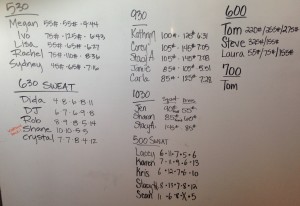 530
Megan 55# · 55# · 9:44
Ivo 75# · 125# · 6:43
Lisa 55# · 65# · 6:27
Rachel 55# · 75# · 8:36
Sydney 45# · 65# · 7:16
630 SWEAT
Dida 4·8·6·8·11
DJ 6·7·6·9·8
Rob 8·9·8·5·14
Shane 11·10·5·5
Crystal 7·7·8·4·12
930
Kathryn 100# · 125# 6:31
Corey 105# · 145# 7:05
Staci A 105# · 145# 7:08
Janic 85# · 105# 5:51
Carla 85# · 125# 7:28
1030
Jen 105#
Shauri 85# 60#
Stacy H 145# 85#
500 SWEAT
Lacey 6·11·7·5·6
Karen 7·11·9·6·13
Kris 6·12·7·6·10
Stacy H 8·13·7·8·12
Sean 11·6·8·X·5
600
Tom 220#/255#/275#
Steve 325#/155#
Laura 75#/155#
700
Tom